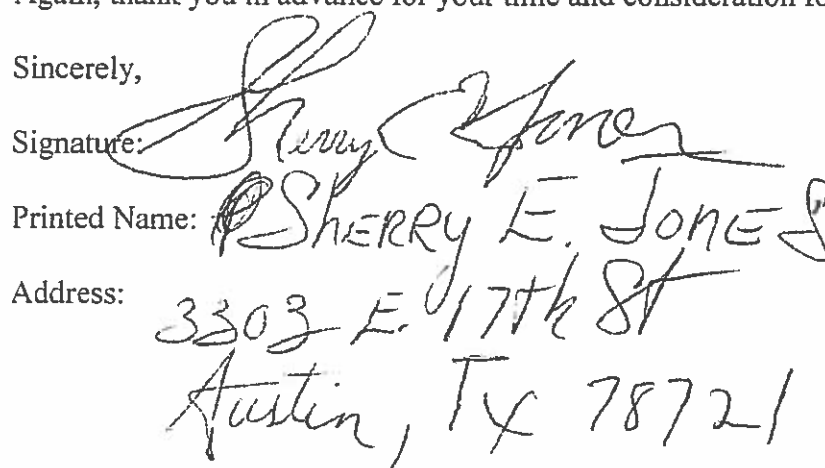 Again, thank you in advance for your time and consideration fo
Sincerely,
Signature: Sherry E Jones
Printed Name: SHERRY E. JONES
Address: 3303 E. 17th St
Austin, Tx 78721